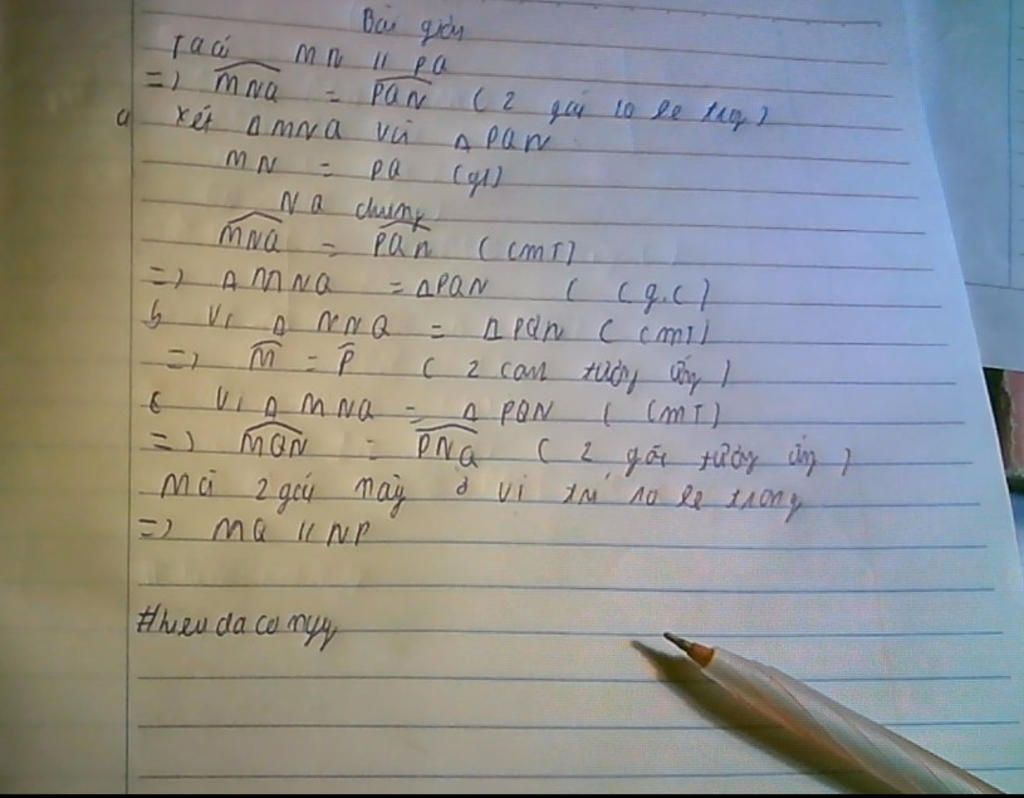 Bài giải
Ta có MN // PQ
=> MNQ = PQN (2 góc so le trg)
a Xét ΔMNQ và ΔPQN
MN = PQ (gt)
NQ chung
MNQ = PQN (cmt)
=> ΔMNQ = ΔPQN (c.g.c)
b Vì ΔMNQ = ΔPQN (cmt)
=> M = P (2 tương ứng)
c Vì ΔMNQ = ΔPQN (cmt)
=> MQN = PNQ (2 góc tương ứng)
Mà 2 góc này ở vị trí so le trong
=> MQ // NP
#hieudaconyy